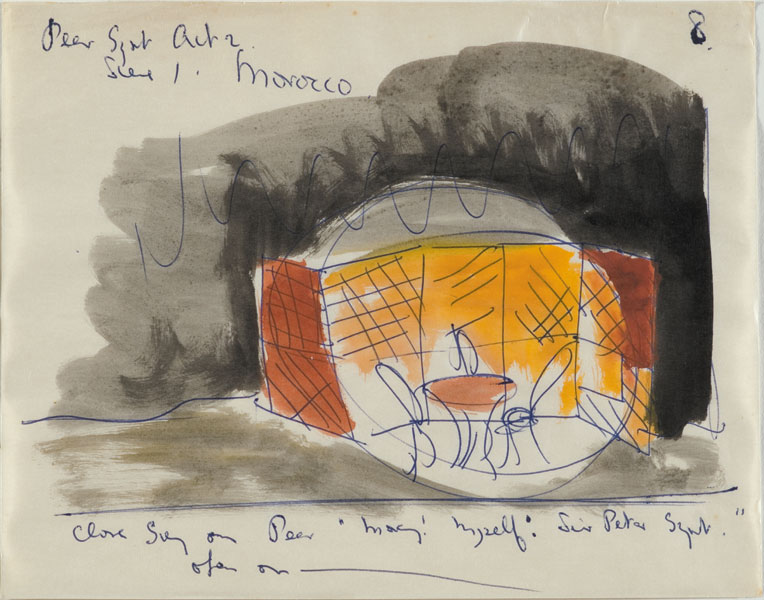 Peer Gynt Act 2.
Scene 1. Morocco
8.
Close on Peer " myself! Sir Peter Gynt."
open on